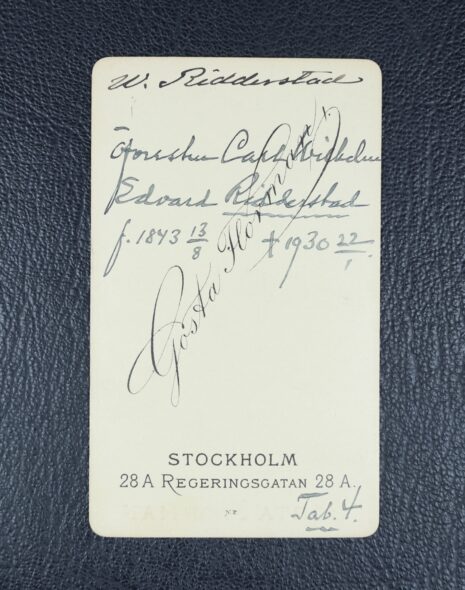 W. Ridderstad
Öfverste Carl Wilhelm
Edvard Ridderstad
f. 1843 13/8 † 1930 22/1.
Gösta Florman
STOCKHOLM
28 A REGERINGSGATAN 28 A.
Tab. 4.